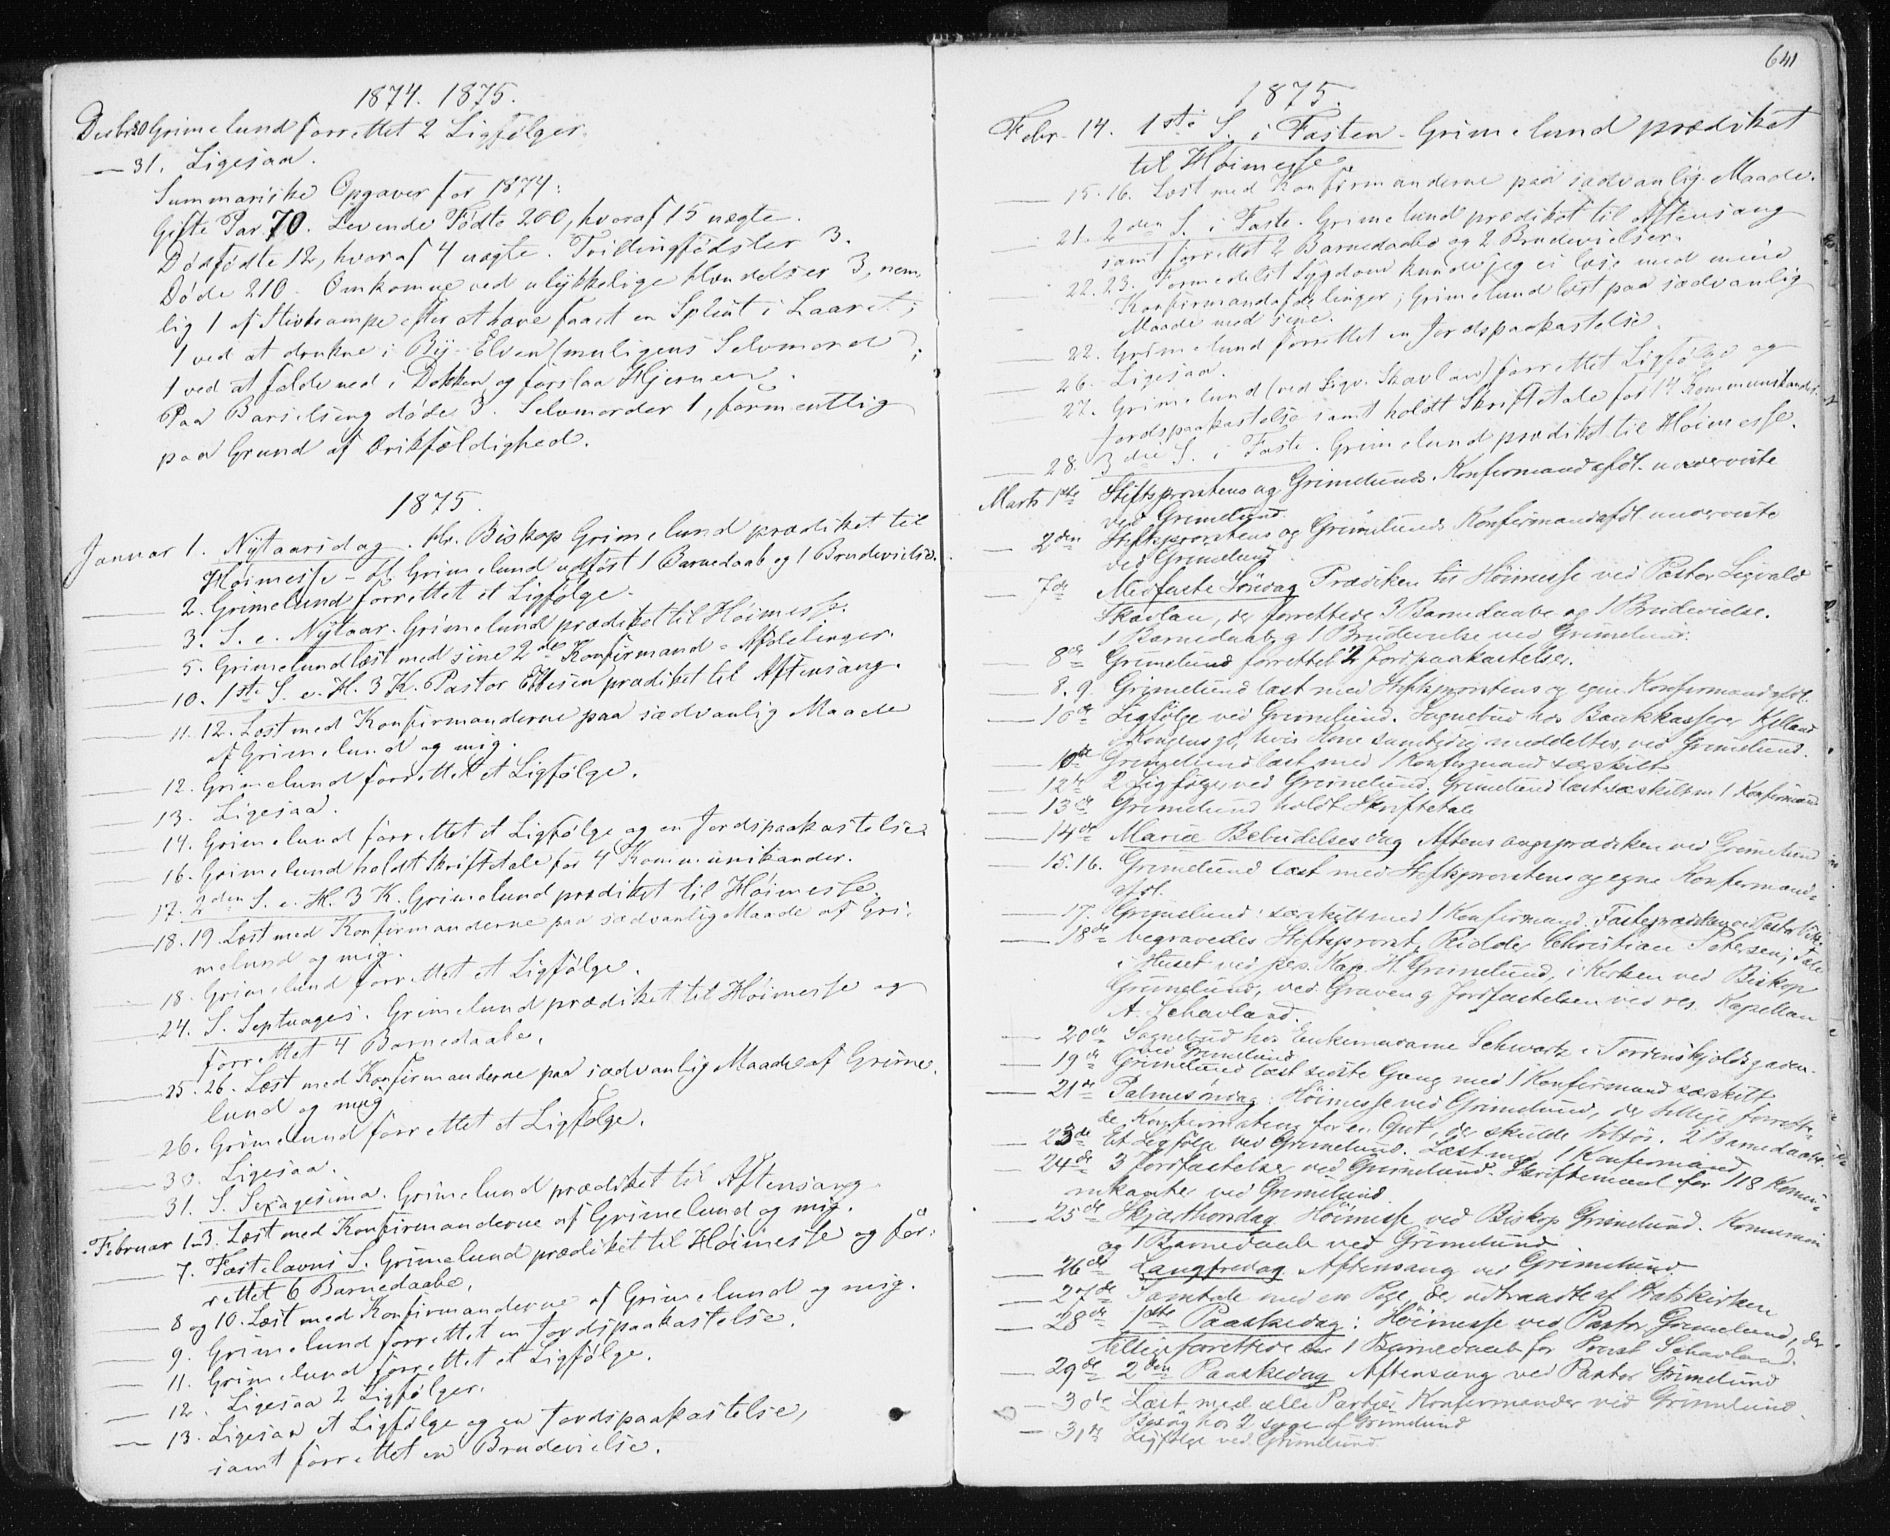 1874. 1875.
Decbr 30 Grimelund forrettet 2 Ligfølger.
— 31. Ligesaa.
Summariske Opgaver for 1874:
Gifte Par 70. Levende Fødte 200, hvoraf 15 uægte.
Dødfødte 12, hvoraf 4 uægte. Trillingfødsler 3.
Døde 210. Omkomne ved ulykkelige Hændelser 3, nem,
lig 1 af Stivkrampe efter at have faaet en Splint i Laaret;
1 ved at drukne i By-Elven (muligens Selvmord);
1 ved at falde ned i Dokken og forslaa Hjernen.
Paa Barselseng døde 3. Selvmorder 1, formentlig
paa Grund af Drikfældighed.
1875.
Januar 1. Nytaarsdag. Hr. Biskop Grimelund prædiket til
Høimesse - H. Grimelund udført 1 Barnedaab og 1 Brudevielse.
— 2. Grimelund forrettet et Ligfølge.
— 3. S. e. Nytaar. Grimelund prædiket til Høimesse.
— 5. Grimelund læst med sine 2de Konfirmand-Afdelinger.
— 10. 1ste S. e. H. 3 K. Pastor Ellesen prædiket til Aftensang.
— 11. 12. Læst med Konfirmanderne paa sædvanlig Maade
af Grimelund og mig.
— 12. Grimelund forrettet et Ligfølge.
— 13. Ligesaa.
— 14. Grimelund forrettet et Ligfølge og en Jordspaakastelse.
— 16. Grimelund holdt Skriftetale for 4 Kommunikander.
— 17. 2den S. e. H. 3 K. Grimelund prædiket til Høimesse.
— 18. 19. Læst med Konfirmanderne paa sædvanlig Maade af Gri-
melund og mig.
— 18. Grimelund forrettet et Ligfølge.
— 24. S. Septuages. Grimelund prædiket til Høimesse og
forrettet 4 Barnedaabe.
— 25. 26. Læst med Konfirmanderne paa sædvanlig Maade af Grime,
lund og mig
— 26. Grimelund forrettet et Ligfølge.
— 30. Ligesaa.
— 31. S. Sexagesima. Grimelund prædiket til Aftensang.
Februar 1-3. Læst med Konfirmanderne af Grimelund og mig.
— 7. Fastelavns S. Grimelund prædiket til Høimesse og for:
rettet 6 Barnedaabe.
— 8 og 10. Læst med Konfirmanderne af Grimelund og mig.
— 9. Grimelund forrettet en Jordspaakastelse.
— 11. Grimelund forrettet et Ligfølge.
— 12. Ligesaa 2 Ligfølger.
— 13. Ligesaa et Ligfølge og en Jordspaakastelse,
samt forrettet en Brudevielse.
641
1875.
Febr. 14. 1ste S. i Fasten. Grimelund prædiket
til Høimesse
— 15. 16. Læst med Konfirmanderne paa sædvanlig Maade.
— 21. 2den S. i Faste. Grimelund prædiket til Aftensang
samt forrettet 2 Barnedaabe og 2 Brudevielser.
— 22. 23. Formedelst Sygdom kunde jeg ei læse med mine
Konfirmandafdelinger; Grimelund læst paa sædvanlig
Maade med sine.
— 22. Grimelund forrettet en Jordspaakastelse.
— 26. Ligesaa.
— 27. Grimelund (ved Sigv. Skavlan) forrettet Ligfølge og
Jordspaakastelse samt holdt Skriftetale for 17 Kommunikander.
— 28. 3die S. i Faste. Grimelund prædiket til Høimesse.
Marts 1ste Stiftsprovstens og Grimelunds Konfirmandafdl. underviste
ved Grimelund.
— 2den Stiftsprovstens og Grimelunds Konfirmandafdl. underviste
ved Grimelund
— 7de Midfaste Søndag Prædiken til Høimesse ved Pastor Sigvald
Skavlan, der forrettede 3 Barnedaabe og 1 Brudevielse.
1 Barnedaab og 1 Brudevielse ved Grimelund.
— 8de Grimelund forrettet 2 Jordpaakastelser.
— 8. 9. Grimelund læst med Stiftsprovstens og egne Konfirmandafdl.
— 10de Ligfølge ved Grimelund. Sognebud hos Bankkasserer Kjelland
i Kongensgd., hvis Kone samtidig meddeltes, ved Grimelund.
— 10de Grimelund læst med 1 Konfirmand særskilt
— 12te 2 Ligfølger ved Grimelund. Grimelund læst særskilt m 1 Konfirmand
— 13de Grimelund holdt Skriftetale
— 14de Mariæ Bebudelses dag Aftensangsprædiken ved Grimelund
15. 16. Grimelund læst med Stiftsprovstens og egne Konfirmand-
afdl.
— 17. Grimelund særskilt med 1 Konfirmand. Fasteprædiken ved Pastor
— 18de begravedes Stiftsprovst, Ridder Christian Petersen; Tale
i Huset ved pers. Kap. H. Grimelund, i Kirken ved Biskop
Grimelund, ved Graven og Jordfæstelsen ved res. Kapellan
A. Schavland.
— 20de Sognebud hos Enkemadame Schwartz i Tordenskjoldsgaden.
ved Grimelund
— 19de Grimelund læst sidste Gang med 1 Konfirmand særskilt.
— 21de Palmesøndag: Høimesse ved Grimelund, der tillige forrette-
de Konfirmation for en Gut, der skulde tilsjøs. 2 Barnedaabe.
— 23de Et Ligfølge ved Grimelund. Læst med 1 Konfirmand
— 24de 3 Jordfæstelser ved Grimelund. Skriftemaal for 118 Kommu-
nikanter ved Grimelund.
— 25de Skjærthorsdag Høimesse ved Biskop Grimelund. Kommunion
og 1 Barnedaab ved Grimelund
— 26de Langfredag Aftensang ved Grimelund
— 27de Samtale med en Pige, der udtraadte af Statskirken
— 28de 1ste Paaskedag: Høimesse ved Pastor Grimelund, der
tillige forrettede 1 Barnedaab for Provst Schavland.
— 29de 2den Paaskedag Aftensang ved Pastor Grimelund
— 30te Læst med alle Partier Konfirmander ved Grimelund.
Besøg hos 2 syge af Grimelund
— 31te Ligfølge ved Grimelund.